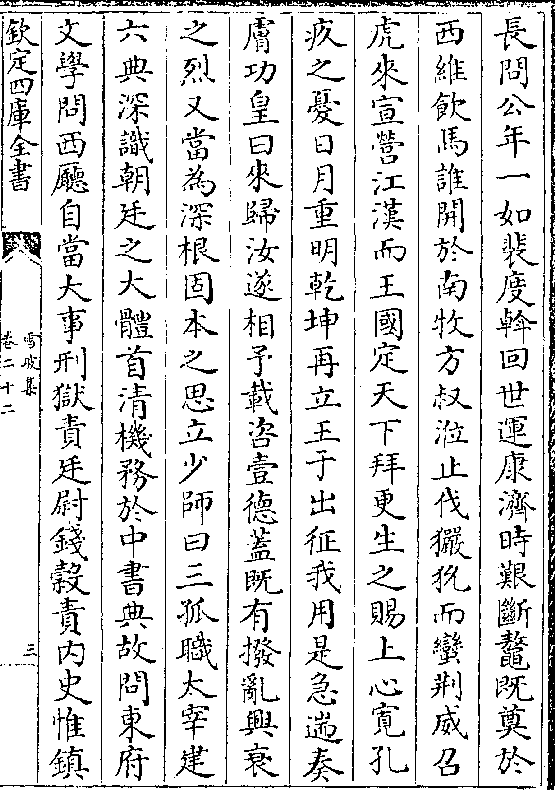 長問公年一如裴度斡回世運康濟時艱斷鼇既奠於
西維飲馬誰開於南牧方叔涖止伐玁狁而蠻荆威召
虎來宣營江漢而王國定天下拜更生之賜上心寛孔
疚之憂日月重明乾坤再立王于出征我用是急遄奏
膚功皇曰來歸汝遂相予載咨壹德蓋既有撥亂興衰
之烈又當為深根固本之思立少師曰三孤職太宰建
六典深識朝廷之大體首清機務於中書典故問東府
文學問西廳自當大事刑獄責廷尉錢穀責内史惟鎮
欽定四庫全書
雪坡集
卷二十二
三